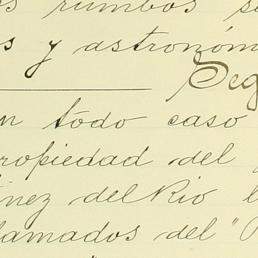 os rumbos se
s y astronóm
Seg
n todo caso
ropiedad del
ínez del Rio l
lamados del "